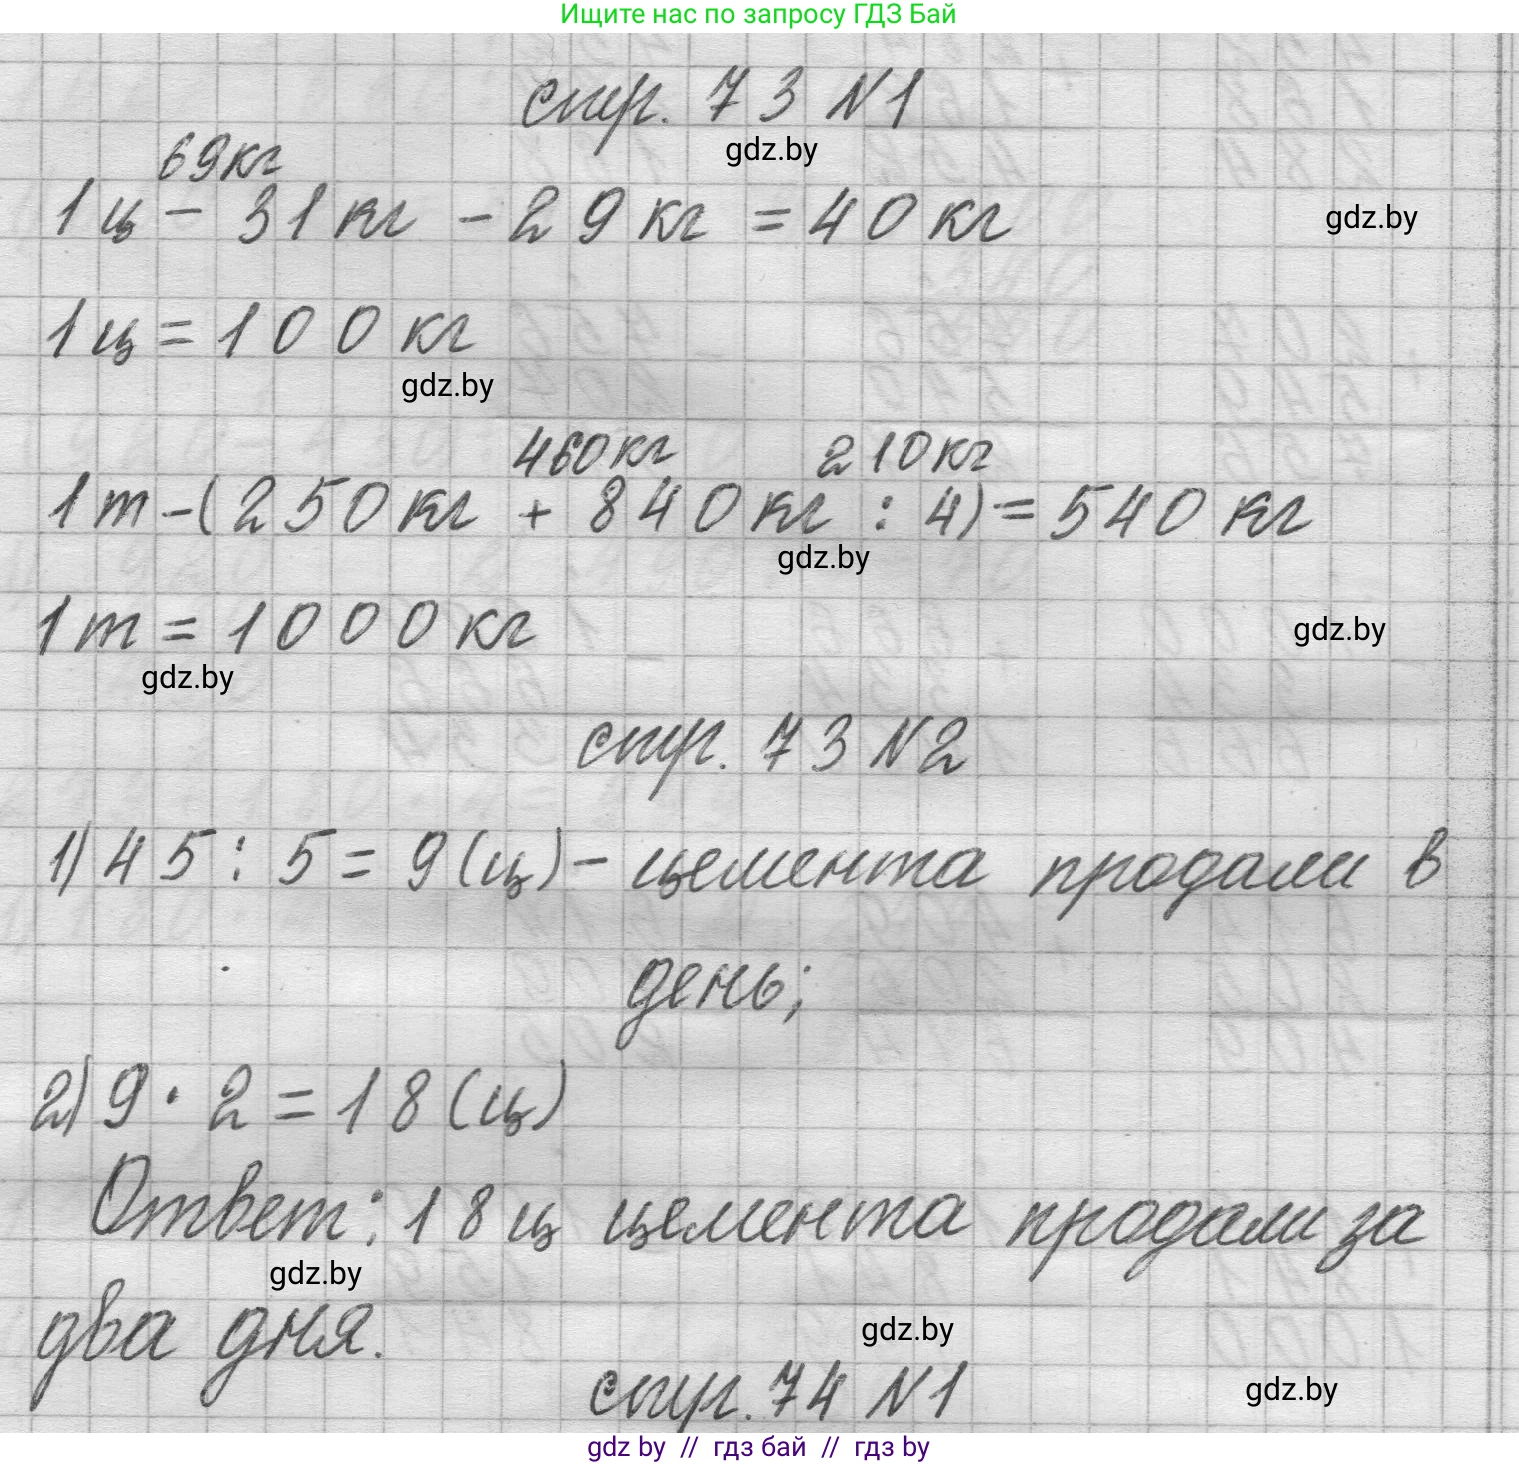 Ищите нас по запросу ГДЗ Бай
стр. 73 №1
gdz.by
69кг
1ц - 31кг - 29кг = 40кг
gdz.by
1ц = 100кг
gdz.by
460кг 210кг
1т - (250кг + 840кг : 4) = 540 кг
gdz.by
1т = 1000кг
gdz.by
gdz.by
стр. 73 №2
1) 45 : 5 = 9 (ц) - цемента продали в
день;
2) 9 · 2 = 18 (ц)
Ответ: 18 ц цемента продали за
gdz.by
два дня.
gdz.by
стр. 74 №1
gdz.by
gdz by // гдз бай // гдз by